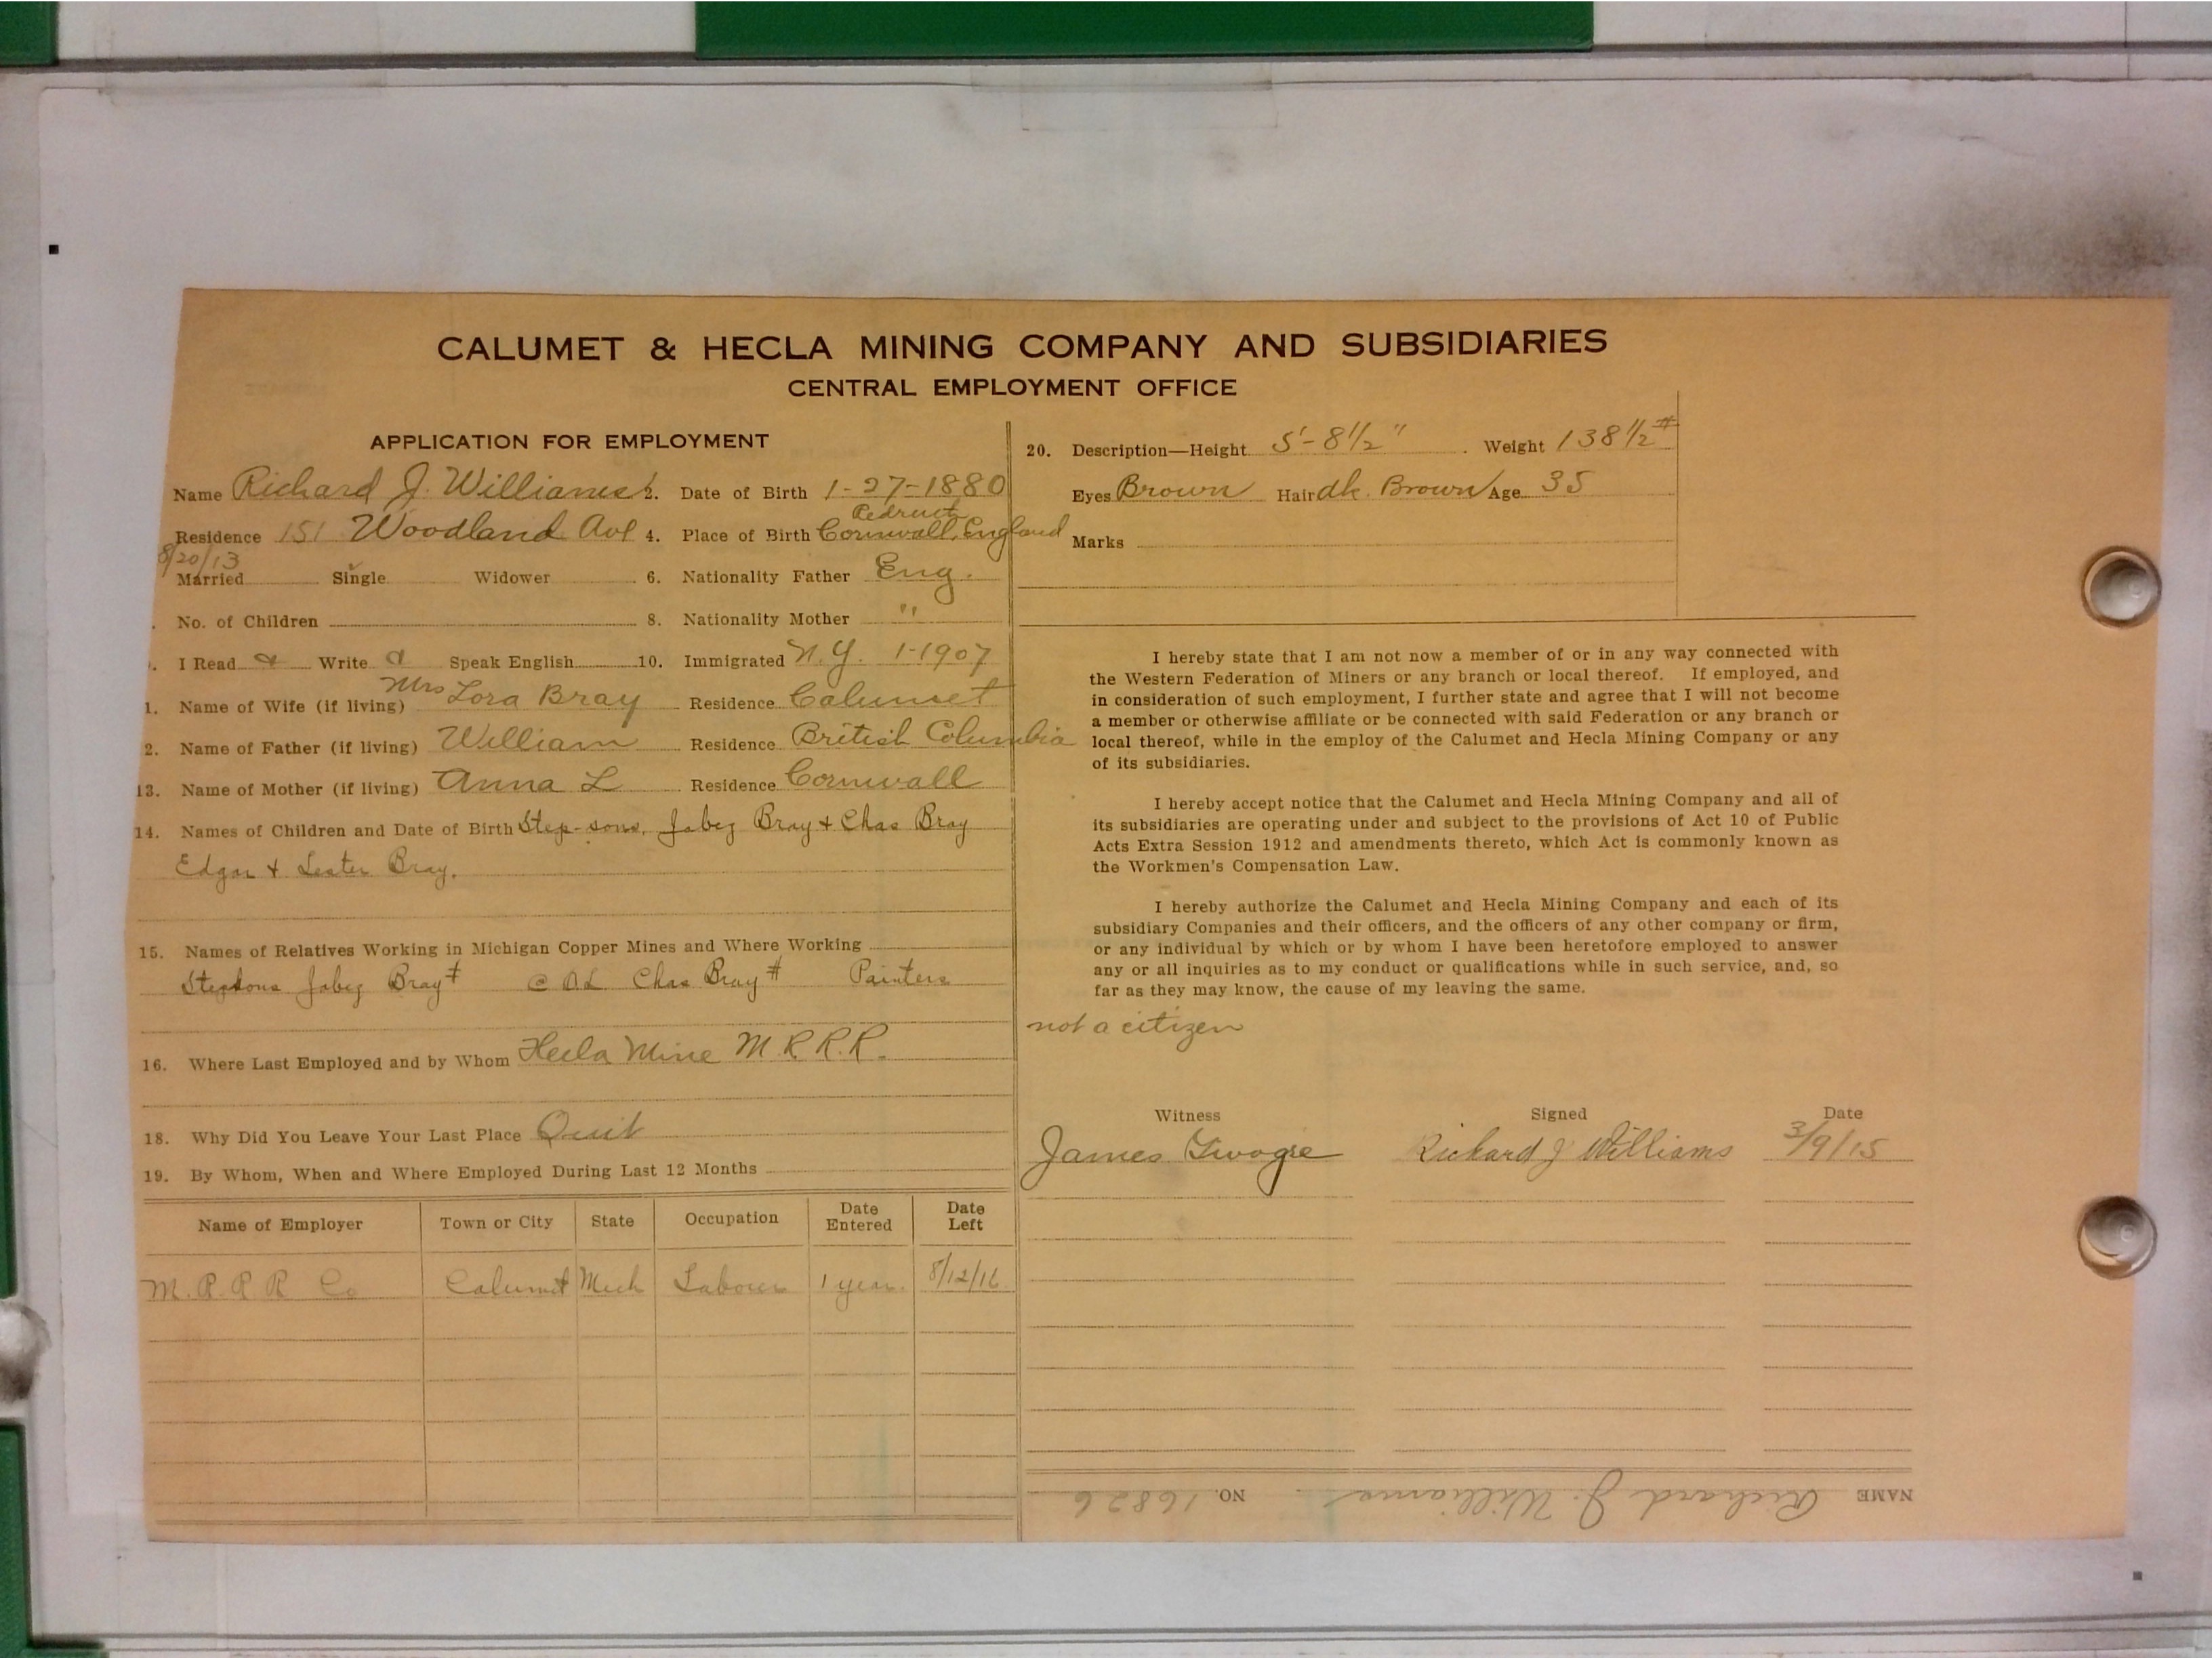 CALUMET & HECLA MINING COMPANY AND SUBSIDIARIES
CENTRAL EMPLOYMENT OFFICE
APPLICATION FOR EMPLOYMENT
Name Richard J. Williams 2. Date of Birth 1-27-1880
Redruth
Residence 151 Woodland Ave 4. Place of Birth Cornwall, England
8/20/13
Married Single Widower 6. Nationality Father Eng.
No. of Children 8. Nationality Mother "
I Read Write Speak English 10. Immigrated N.Y. 1-1907
Mrs
1. Name of Wife (if living) Lora Bray Residence Calumet
2. Name of Father (if living) William Residence British Columbia
13. Name of Mother (if living) Anna L Residence Cornwall
14. Names of Children and Date of Birth Step-sons, Jabez Bray + Chas Bray
Edgar + Lester Bray.
15. Names of Relatives Working in Michigan Copper Mines and Where Working
Stepsons Jabez Bray # Chas Bray # Painters
16. Where Last Employed and by Whom Hecla Mine M.R.R.R.
18. Why Did You Leave Your Last Place Quit
19. By Whom, When and Where Employed During Last 12 Months
Name of Employer Town or City State Occupation Date Entered Date Left
M. R. R R Co Calumet Mich Laborer 1 year. 8/12/16
20. Description—Height 5'-8 1/2" Weight 138 1/2 #
Eyes Brown Hair dk. Brown Age 35
Marks
I hereby state that I am not now a member of or in any way connected with
the Western Federation of Miners or any branch or local thereof. If employed, and
in consideration of such employment, I further state and agree that I will not become
a member or otherwise affiliate or be connected with said Federation or any branch or
local thereof, while in the employ of the Calumet and Hecla Mining Company or any
of its subsidiaries.
I hereby accept notice that the Calumet and Hecla Mining Company and all of
its subsidiaries are operating under and subject to the provisions of Act 10 of Public
Acts Extra Session 1912 and amendments thereto, which Act is commonly known as
the Workmen's Compensation Law.
I hereby authorize the Calumet and Hecla Mining Company and each of its
subsidiary Companies and their officers, and the officers of any other company or firm,
or any individual by which or by whom I have been heretofore employed to answer
any or all inquiries as to my conduct or qualifications while in such service, and, so
far as they may know, the cause of my leaving the same.
not a citizen
Witness Signed Date
James Richard J Williams 3/9/15
NAME Richard J. Williams NO. 16826